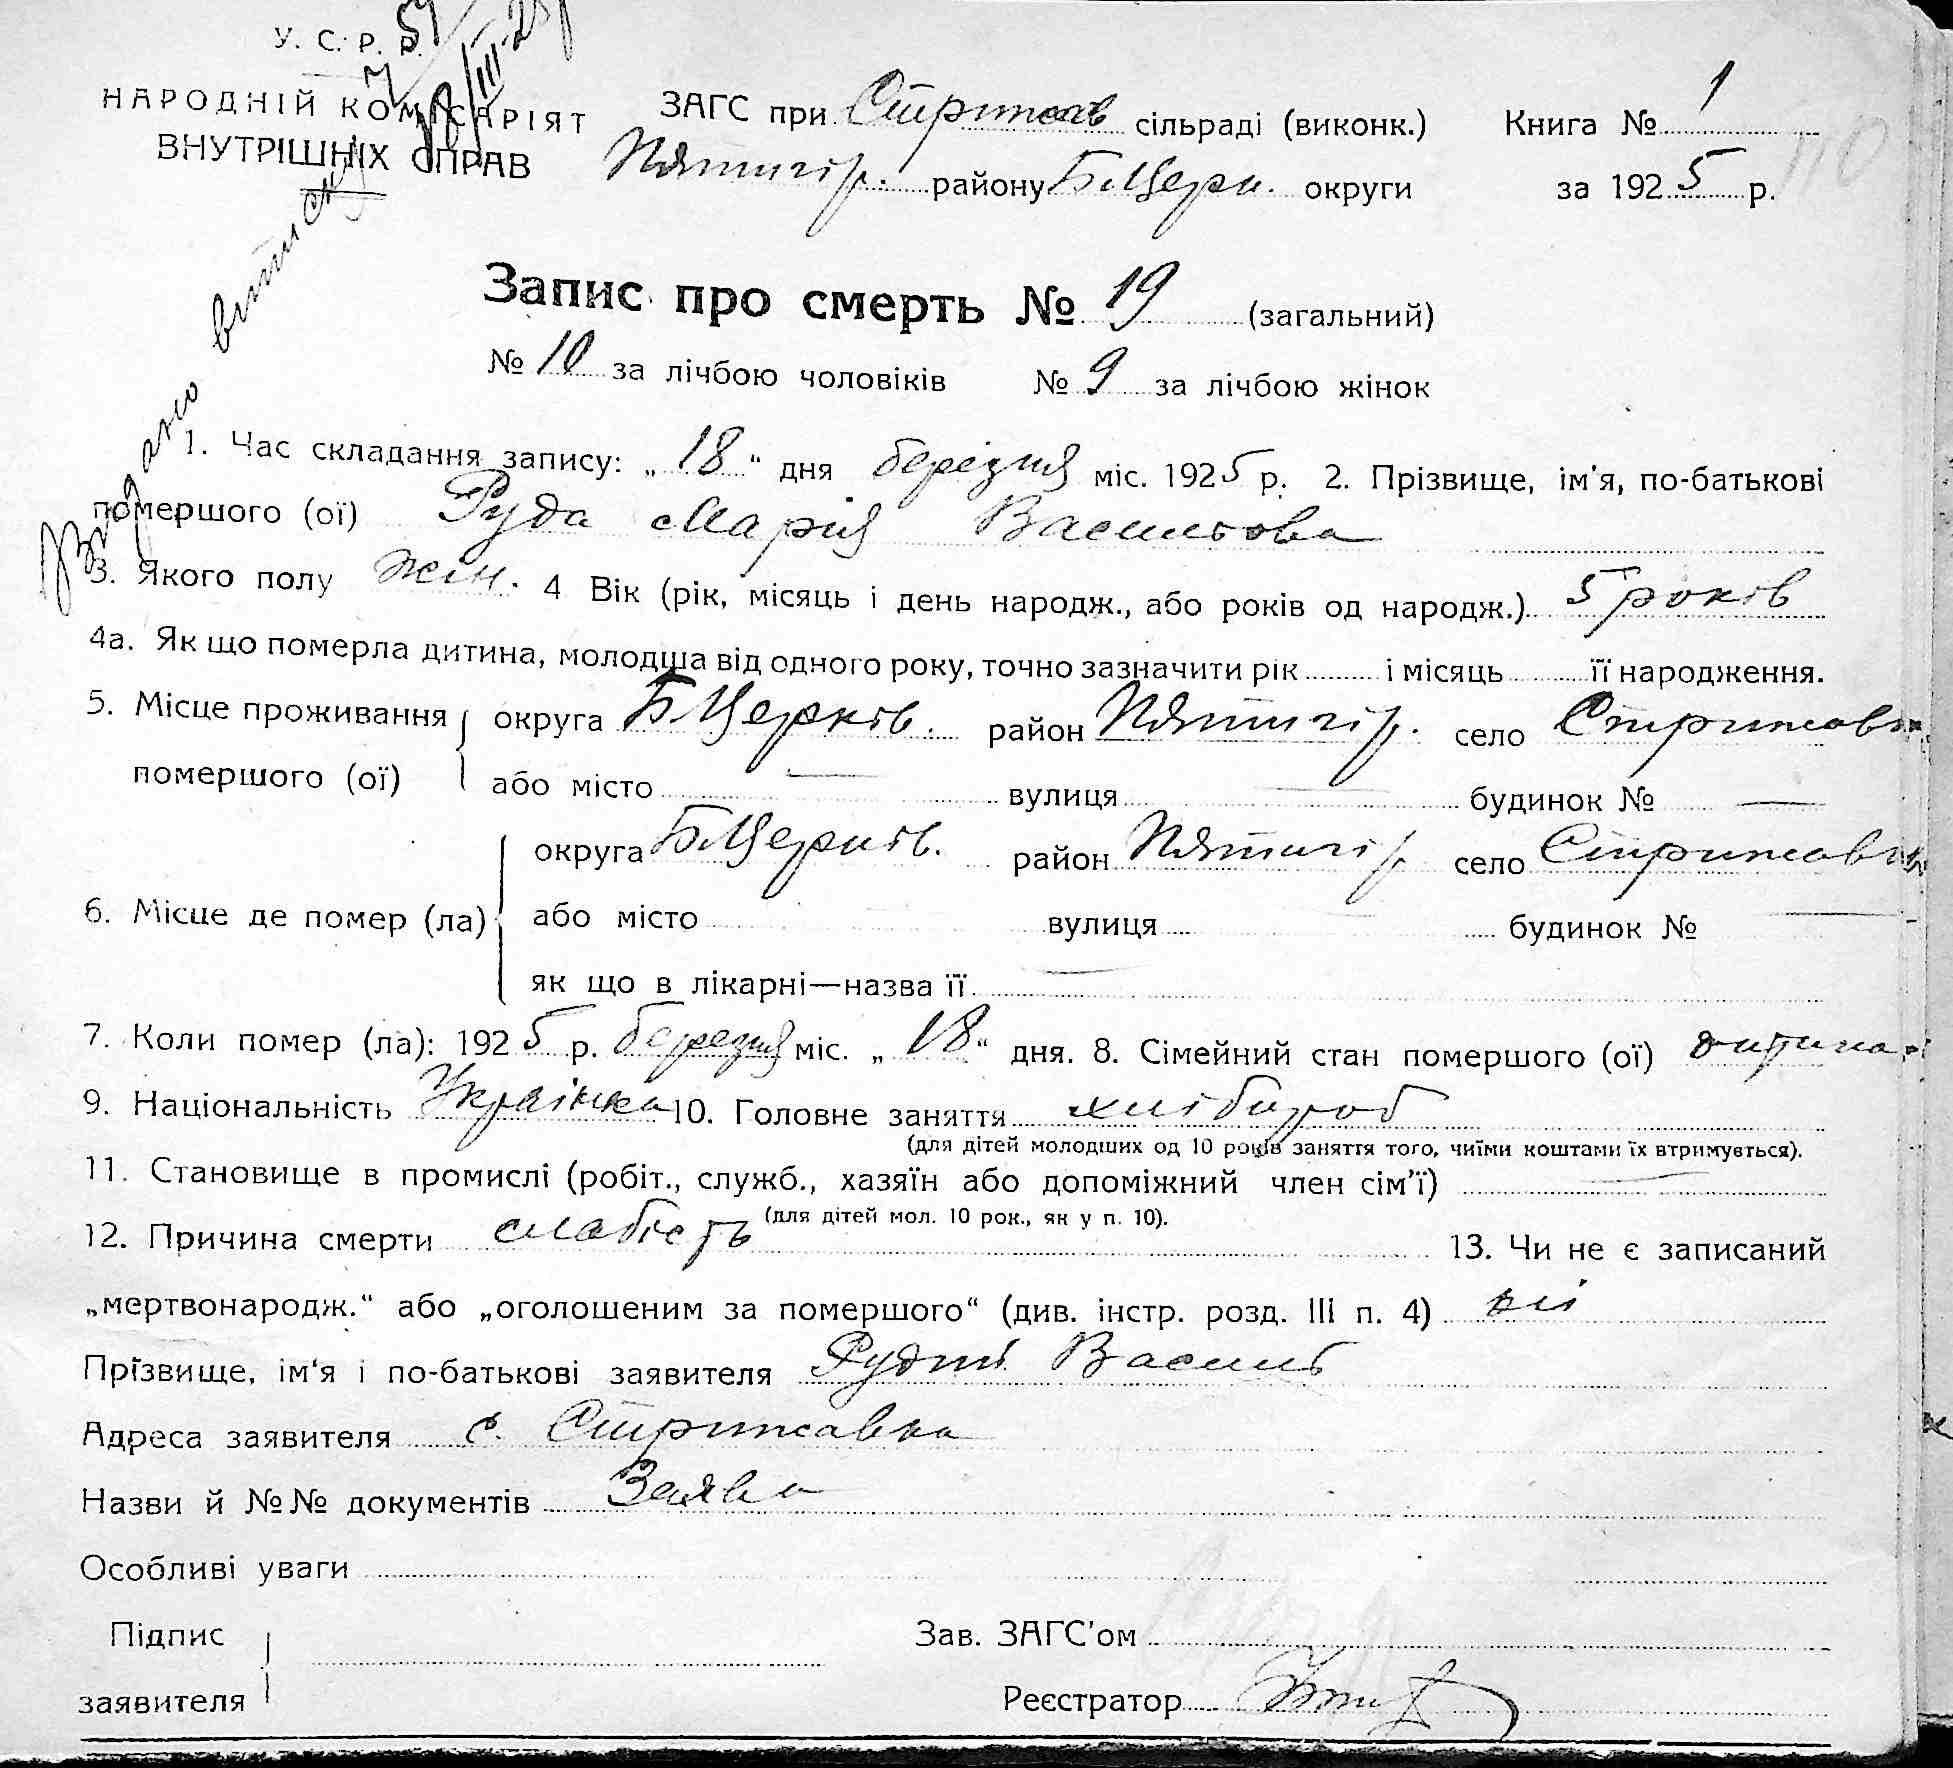 У. С. Р. Р.
НАРОДНІЙ КОМІСАРІЯТ
ВНУТРІШНІХ СПРАВ
Видано виписку
ЗАГС при Стрижав сільраді (виконк.) Книга № 1
Пятигір. району Б.Церк. округи за 1925 р.
110
Запис про смерть № 19 (загальний)
№ 10 за лічбою чоловіків № 9 за лічбою жінок
1. Час складання запису: „18“ дня березня міс. 1925 р. 2. Прізвище, ім'я, по-батькові
помершого (ої) Руда Марія Васильова
3. Якого полу жін. 4 Вік (рік, місяць і день народж., або років од народж.) 5 років
4а. Як що померла дитина, молодша від одного року, точно зазначити рік і місяць її народження.
5. Місце проживання округа Б.Церків. район Пятигір. село Стрижавка
помершого (ої) або місто — вулиця — будинок № —
округа Б.Церків. район Пятигір село Стрижавка
6. Місце де помер (ла) або місто вулиця будинок № —
як що в лікарні—назва її —
7. Коли помер (ла): 1925 р. березня міс. „18“ дня. 8. Сімейний стан помершого (ої) дитина
9. Національність Українка 10. Головне заняття хлібороб
(для дітей молодших од 10 років заняття того, чиїми коштами їх втримується).
11. Становище в промислі (робіт., служб., хазяїн або допоміжний член сім'ї) —
(для дітей мол. 10 рок., як у п. 10).
12. Причина смерти слабість 13. Чи не є записаний
„мертвонародж.“ або „оголошеним за помершого“ (див. інстр. розд. III п. 4) ні
Прізвище, ім'я і по-батькові заявителя Рудий Василь
Адреса заявителя с. Стрижавка
Назви й №№ документів Заява
Особливі уваги
Підпис Зав. ЗАГС'ом
заявителя Реєстратор